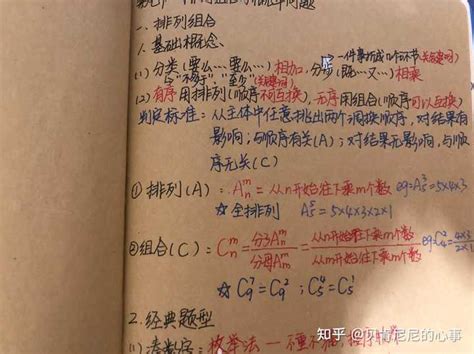 一、排列组合
1.基础出相概念、
(1) 分类(要么…要么…)相加,分步(既…又…)相乘
一件事拆成几个环节
“不少于”、“至少”
(2) 有序用排列(顺序不可互换),无序用组合(顺序可以互换)
判定标准:从主体中任意挑出两个调换顺序,对结果有
影响,与顺序有关(A);对结果无影响,与顺
序无关(C)
① 排列(A): Aₙᵐ = 从n开始往下乘m个数 eg=A₅³=5×4×3
☆ 全排列 A₅⁵=5×4×3×2×1
②组合(C): Cₙᵐ = 分子Aₙᵐ/分母Aₘᵐ = 从n开始往下乘m个数/从m开始往下乘m个数 eg:C₄²=4×3/2×1
☆ C₉⁷=C₉²;C₅⁴=C₅¹
2.经典题型
枚举法一
知乎 @贝肯尼尼的心事